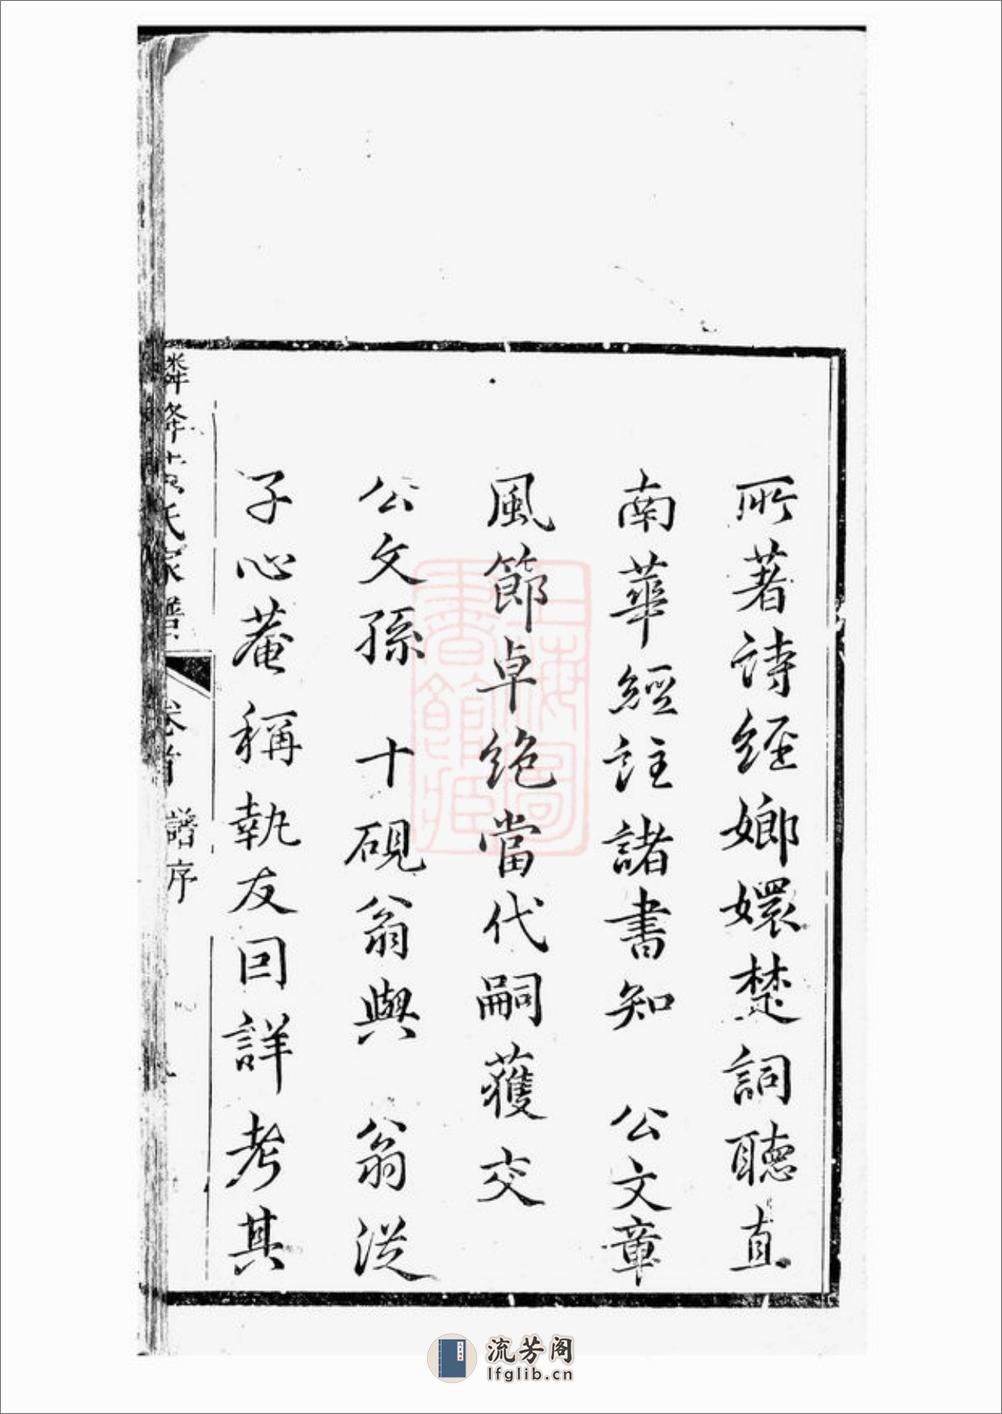 所著詩經嫏嬛楚詞聽直
南華經註諸書知 公文章
風節卓絶當代嗣獲交
公文孫 十硯翁與 翁從
子心菴稱執友因詳考其
氏家譜
卷首 譜序
上海圖
書館藏
流芳阁
lfglib.cn